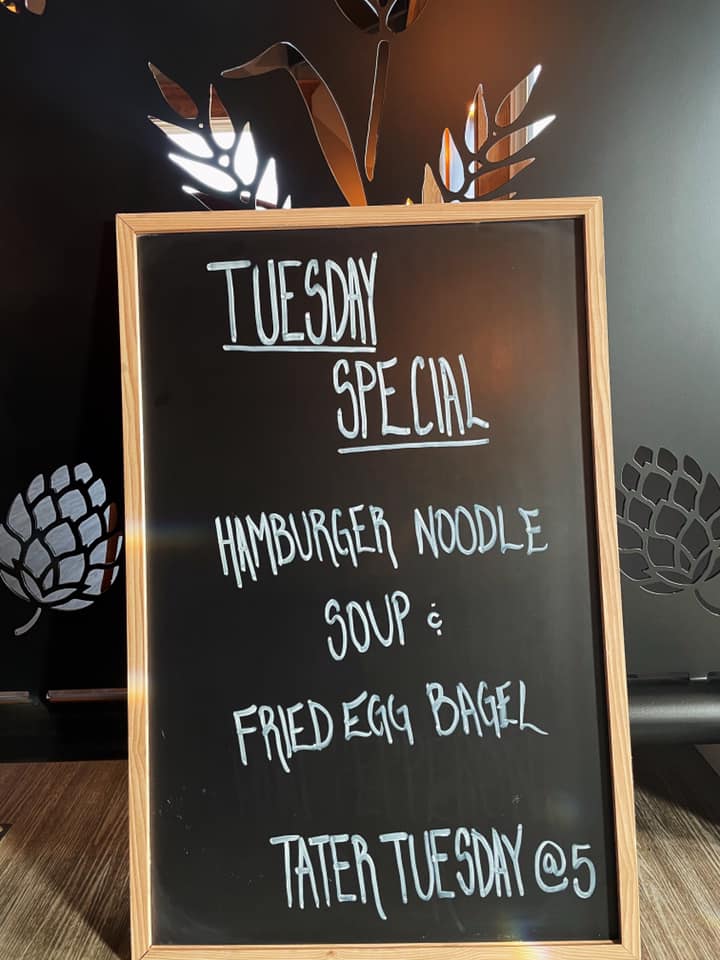 TUESDAY
SPECIAL
HAMBURGER NOODLE
SOUP &
FRIED EGG BAGEL
TATER TUESDAY @5